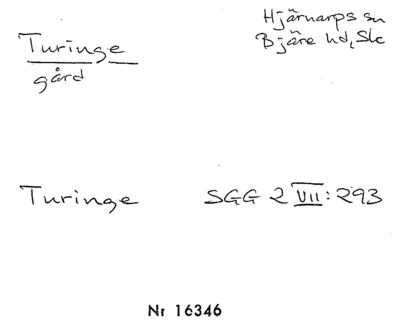 Turinge
gård
Hjärnarps sn
Bjäre hd, Sk
Turinge SGG 2 VII: 293
Nr 16346